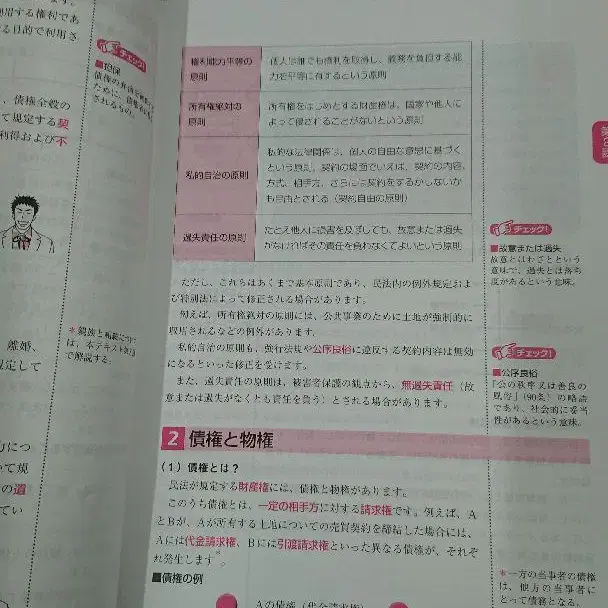 用する権利であ
る目的で利用さ
、債権全般の
て規定する契
利得および不
離婚、
規定して
方につ
いて規
の遺
てい
チェック!
■担保
債権の
ために、
されるもの。
*親族と相続につい
は、本テキスト
で解説する。
権利能力平等の
原則
個人は誰でも権利を取得し、義務を負担する能
力を平等に有するという原則
所有権絶対の
原則
所有権をはじめとする財産権は、国家や他人に
よって侵されることがないという原則
私的自治の原則
私的な法律関係は、個人の自由な意思に基づく
という原則。契約の場面でいえば、契約の内容、
方式、相手方、さらには契約をするかしないか
も自由とされる(契約自由の原則)
過失責任の原則
たとえ他人に損害を及ぼしても、故意または過失
がなければその責任を負わなくてよいという原則
ただし、これらはあくまで基本原則であり、民法内の例外規定およ
び特別法によって修正される場合があります。
例えば、所有権絶対の原則には、公共事業のために土地が強制的に
収用されるなどの例外があります。
私的自治の原則も、強行法規や公序良俗に違反する契約内容は無効
になるといった修正を受けます。
また、過失責任の原則は、被害者保護の観点から、無過失責任(故
意または過失がなくとも責任を負う)とされる場合があります。
2 債権と物権
(1)債権とは?
民法が規定する財産権には、債権と物権があります。
このうち債権とは、一定の相手方に対する請求権です。例えば、A
とBが、Aが所有する土地についての売買契約を締結した場合には、
Aには代金請求権、Bには引渡請求権といった異なる債権が、それぞ
れ発生します*。
■債権の例
Aの債権(代金請求権)
チェック!
■故意または過失
故意とはわざとという
意味で、過失とは落ち
度があるという意味。
チェック!
■公序良俗
「公の秩序又は善良の
風俗」(90条)の略語
であり、社会的に妥当
性があるという意味。
*一方の当事者の債権
は、他方の当事者に
とって債務となる。